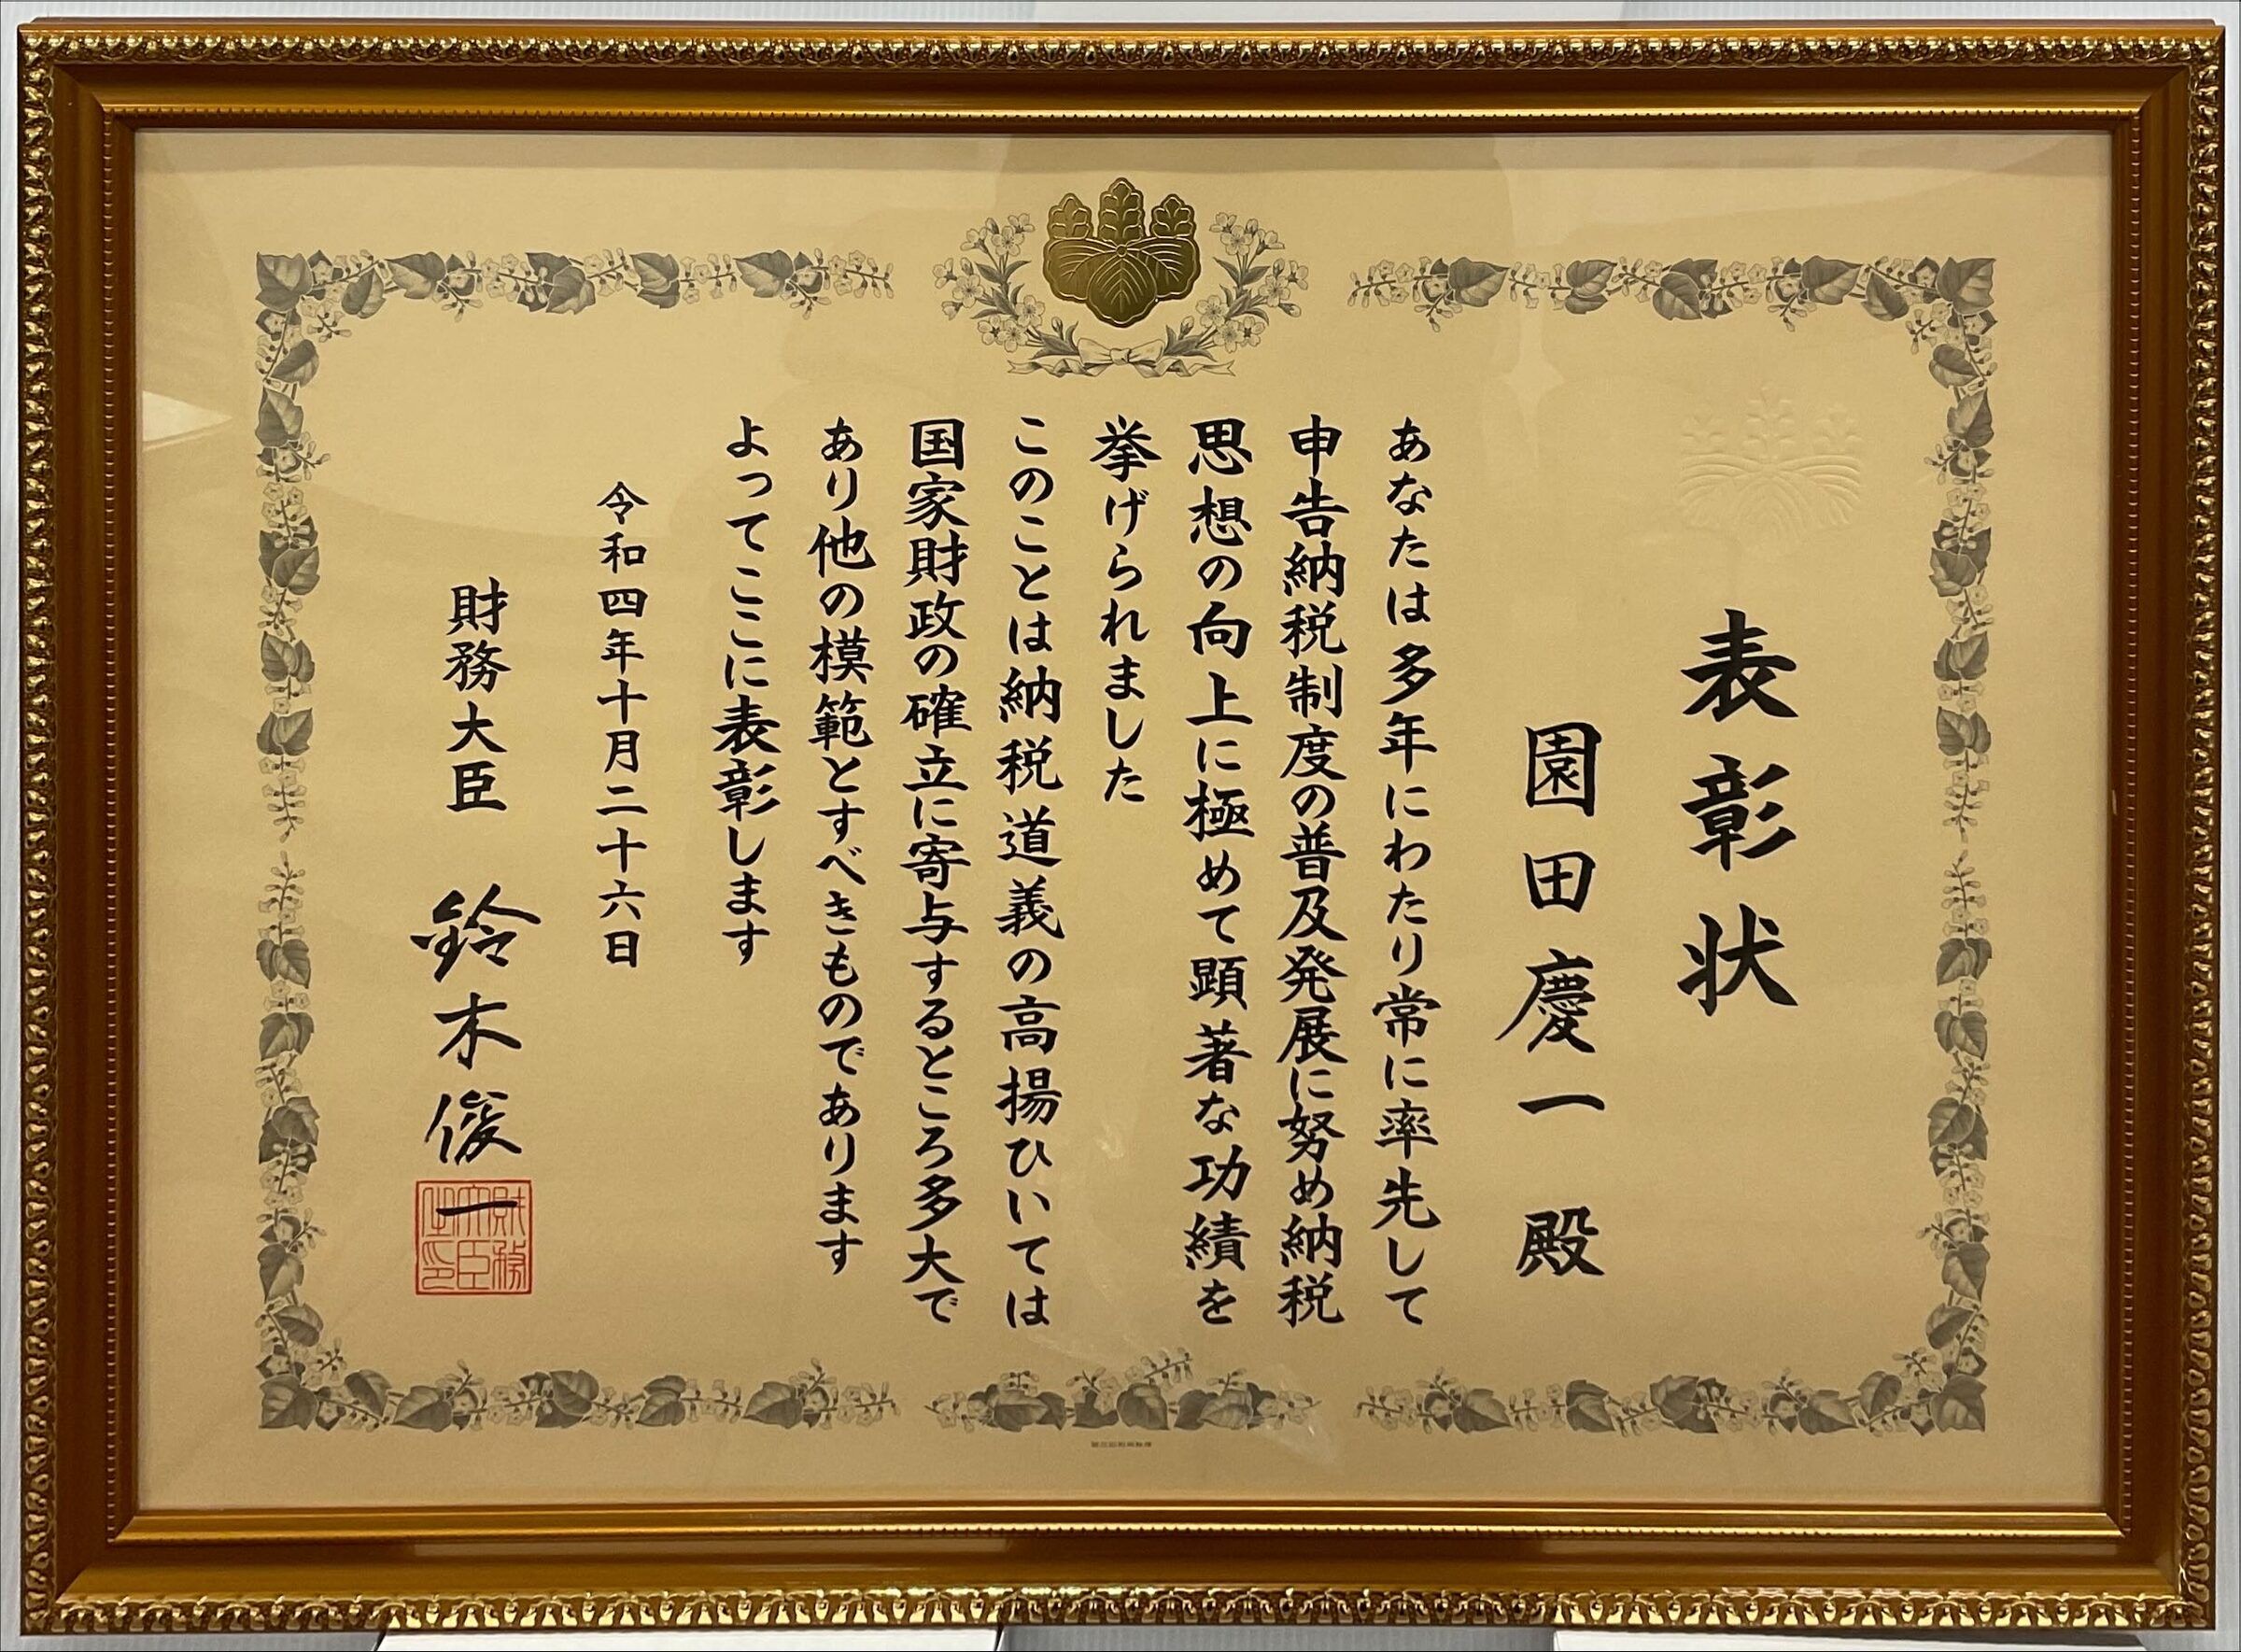 表彰状
園田慶一 殿
あなたは多年にわたり常に率先して
申告納税制度の普及発展に努め納税
思想の向上に極めて顕著な功績を
挙げられました
このことは納税道義の高揚ひいては
国家財政の確立に寄与するところ多大で
あり他の模範とすべきものであります
よってここに表彰します
令和四年十月二十六日
財務大臣 鈴木俊一
財務大臣之印